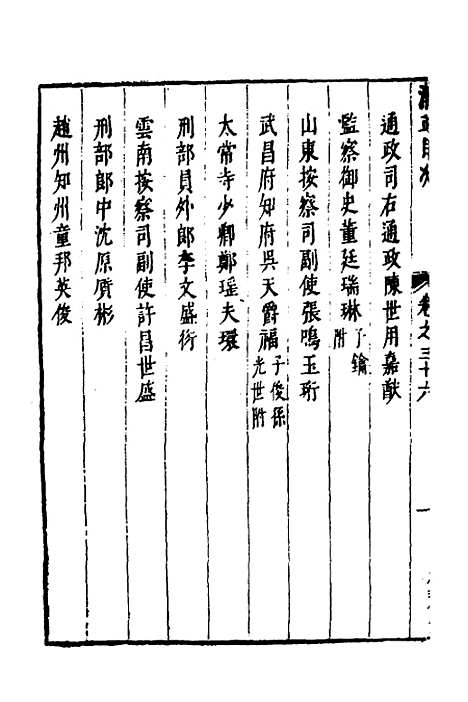 卷之三十六
通政司右通政陳世用嘉猷
監察御史董廷瑞琳子鑰附
山東按察司副使張鳴玉珩
武昌府知府吳天爵福子俊孫光世附
太常寺少卿鄭瑤夫環
刑部員外郎李文盛衍
雲南按察司副使許昌世盛
刑部郎中沈原質彬
趙州知州童邦英俊